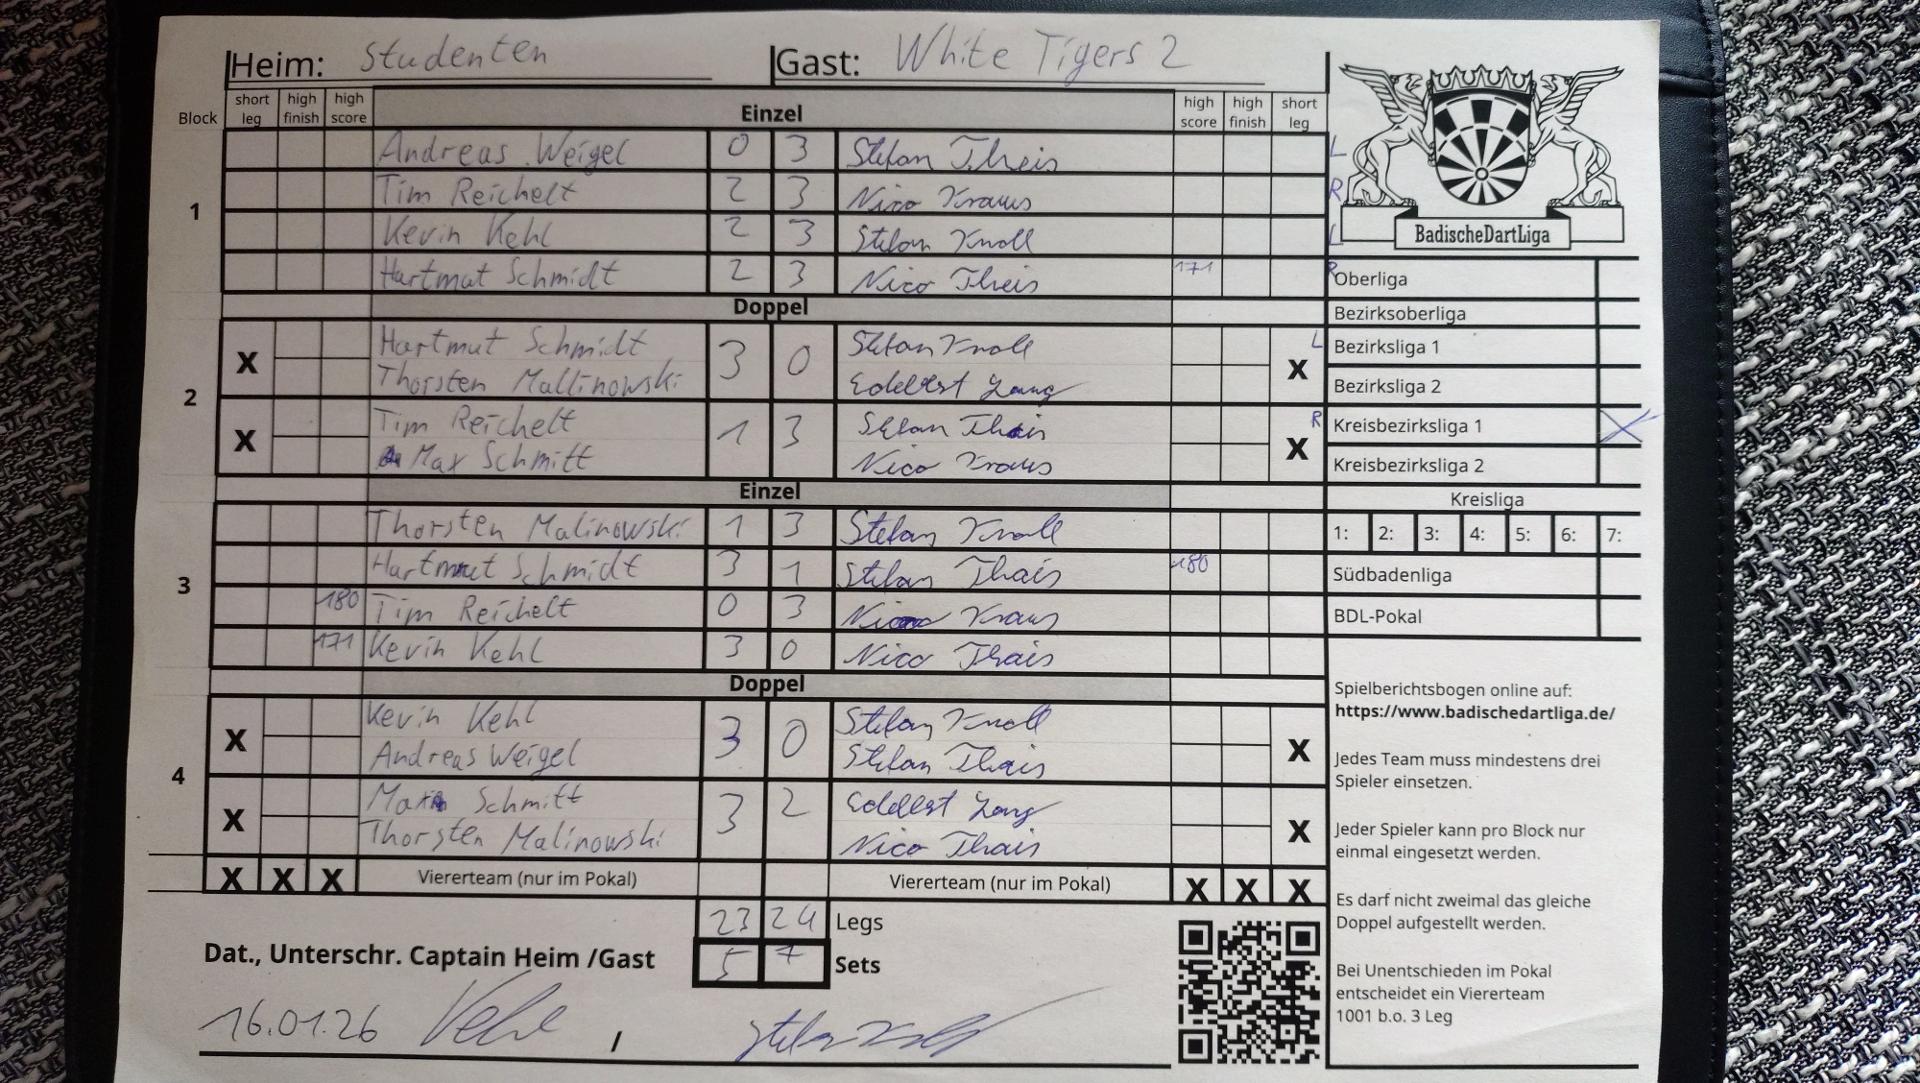 Heim: Studenten Gast: White Tigers 2
Block short leg high finish high score Einzel high score high finish short leg
1
Andreas Weigel 0 3 Stefan Theis L
Tim Reichelt 2 3 Nico Kraus R
Kevin Kehl 2 3 Stefan Knoll L
Hartmut Schmidt 2 3 Nico Theis 171 R
Doppel
2
X Hartmut Schmidt 3 0 Stefan Knoll L X
Thorsten Mallinowski
X Tim Reichelt 1 3 Stefan Thais R X
Max Schmitt Nico Kraus
Einzel
3
Thorsten Malinowski 1 3 Stefan Knoll
Hartmut Schmidt 3 1 Stefan Thais 180
180 Tim Reichelt 0 3 Nico Kraus
171 Kevin Kehl 3 0 Nico Thais
Doppel
4
X Kevin Kehl 3 0 Stefan Knoll X
Andreas Weigel Stefan Thais
X Max Schmitt 3 2 X
Thorsten Malinowski Nico Thais
X X X Viererteam (nur im Pokal) Viererteam (nur im Pokal) X X X
23 24 Legs
Dat., Unterschr. Captain Heim /Gast 5 7 Sets
16.01.26 Kehl / Stefan Knoll
BadischeDartLiga
Oberliga
Bezirksoberliga
Bezirksliga 1
Bezirksliga 2
Kreisbezirksliga 1 X
Kreisbezirksliga 2
Kreisliga
1: 2: 3: 4: 5: 6: 7:
Südbadenliga
BDL-Pokal
Spielberichtsbogen online auf:
https://www.badischedartliga.de/
Jedes Team muss mindestens drei
Spieler einsetzen.
Jeder Spieler kann pro Block nur
einmal eingesetzt werden.
Es darf nicht zweimal das gleiche
Doppel aufgestellt werden.
Bei Unentschieden im Pokal
entscheidet ein Viererteam
1001 b.o. 3 Leg